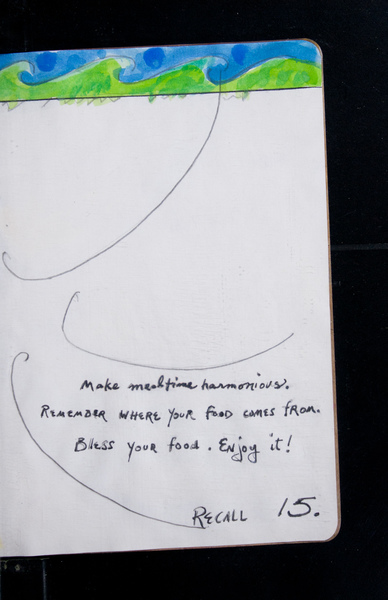 Make mealtime harmonious.
REMEMBER WHERE YOUR FOOD COMES FROM.
BLESS YOUR FOOD. ENJOY it!
RECALL 15.